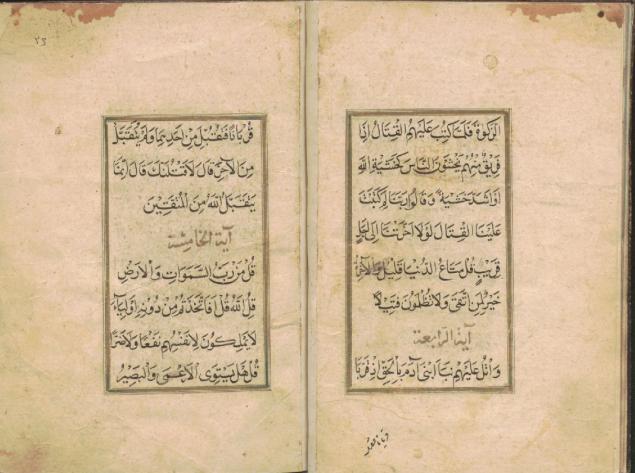 الزكوة فلما كتب عليهم القتال اذا
فريق منهم يخشون الناس كخشية الله
او اشد خشية وقالوا ربنا لم كتبت
علينا القتال لولا اخرتنا الى اجل
قريب قل متاع الدنيا قليل والاخرة
خير لمن اتقى ولا تظلمون فتيلا
آية الرابعة
واتل عليهم نبا ابنى آدم بالحق اذ قربا
قربانا
٢٣
قربانا فتقبل من احدهما ولم يتقبل
من الآخر قال لاقتلنك قال انما
يتقبل الله من المتقين
آية الخامسة
قل من رب السموات والارض
قل الله قل افاتخذتم من دونه اولياء
لا يملكون لانفسهم نفعا ولا ضرا
قل هل يستوى الاعمى والبصير